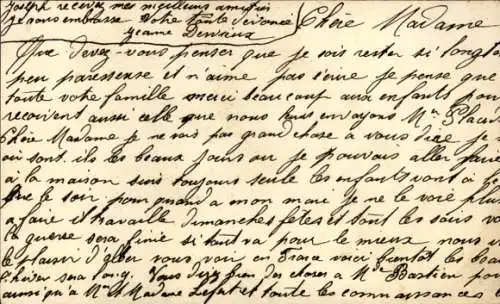 Joseph recevez mes meilleurs amitiés
Je vous embrasse Votre toute dévouée
Jeanne Devaux
Chère Madame
Que devez-vous penser que je sois rester si longt
peu paresseuse et n'aime pas écrire je pense que
toute votre famille merci beaucoup aux enfants pour
reçoivent aussi celle que nous leurs envoyons Mr
Chère Madame je ne vois pas grand chose a vous dire je
où sont ils les beaux jours ou je pouvais aller fair
à la maison suis toujours seule les enfants vont à l
que le soir pour quand a mon mari je ne le voie plus
a faire il travaille dimanches fêtes et tout les soirs
la guerre sera finie si tout va pour le mieux nous
le plaisir d'aller vous voir en France voici bientôt les beau
l'hiver sera long. Vous direz bien des choses a Mr Bastien pour
ainsi qu'a Mr et Madame et toute les connaissances